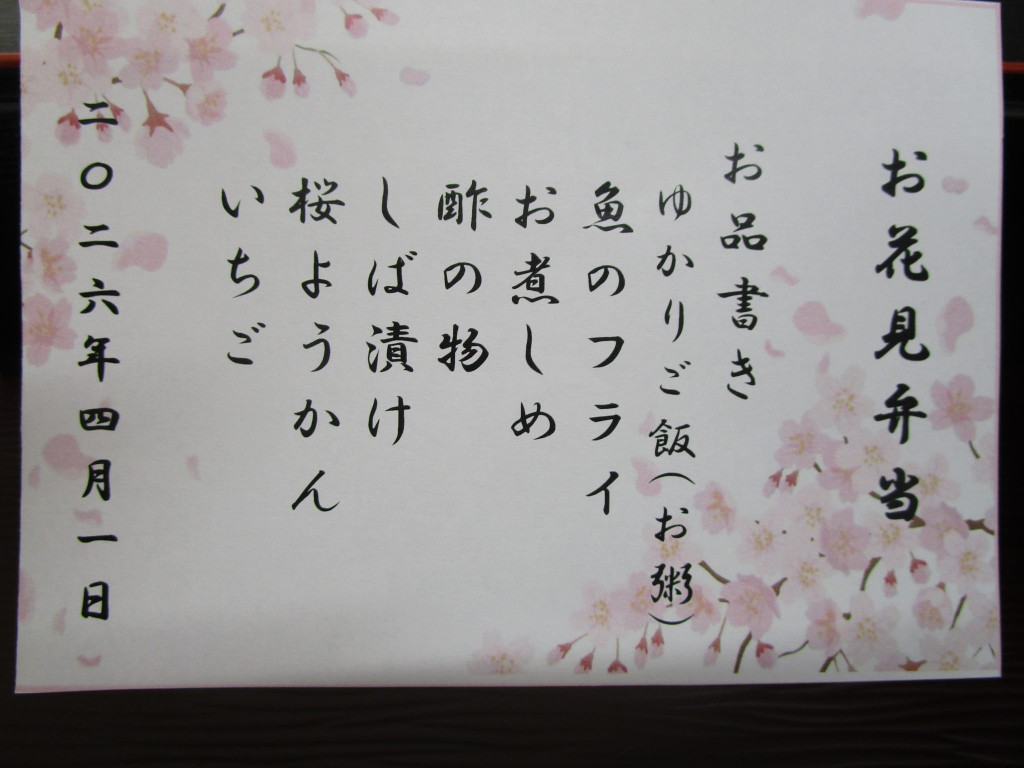 お花見弁当
お品書き
ゆかりご飯(お粥)
魚のフライ
お煮しめ
酢の物
しば漬け
桜ようかん
いちご
二〇二六年四月一日